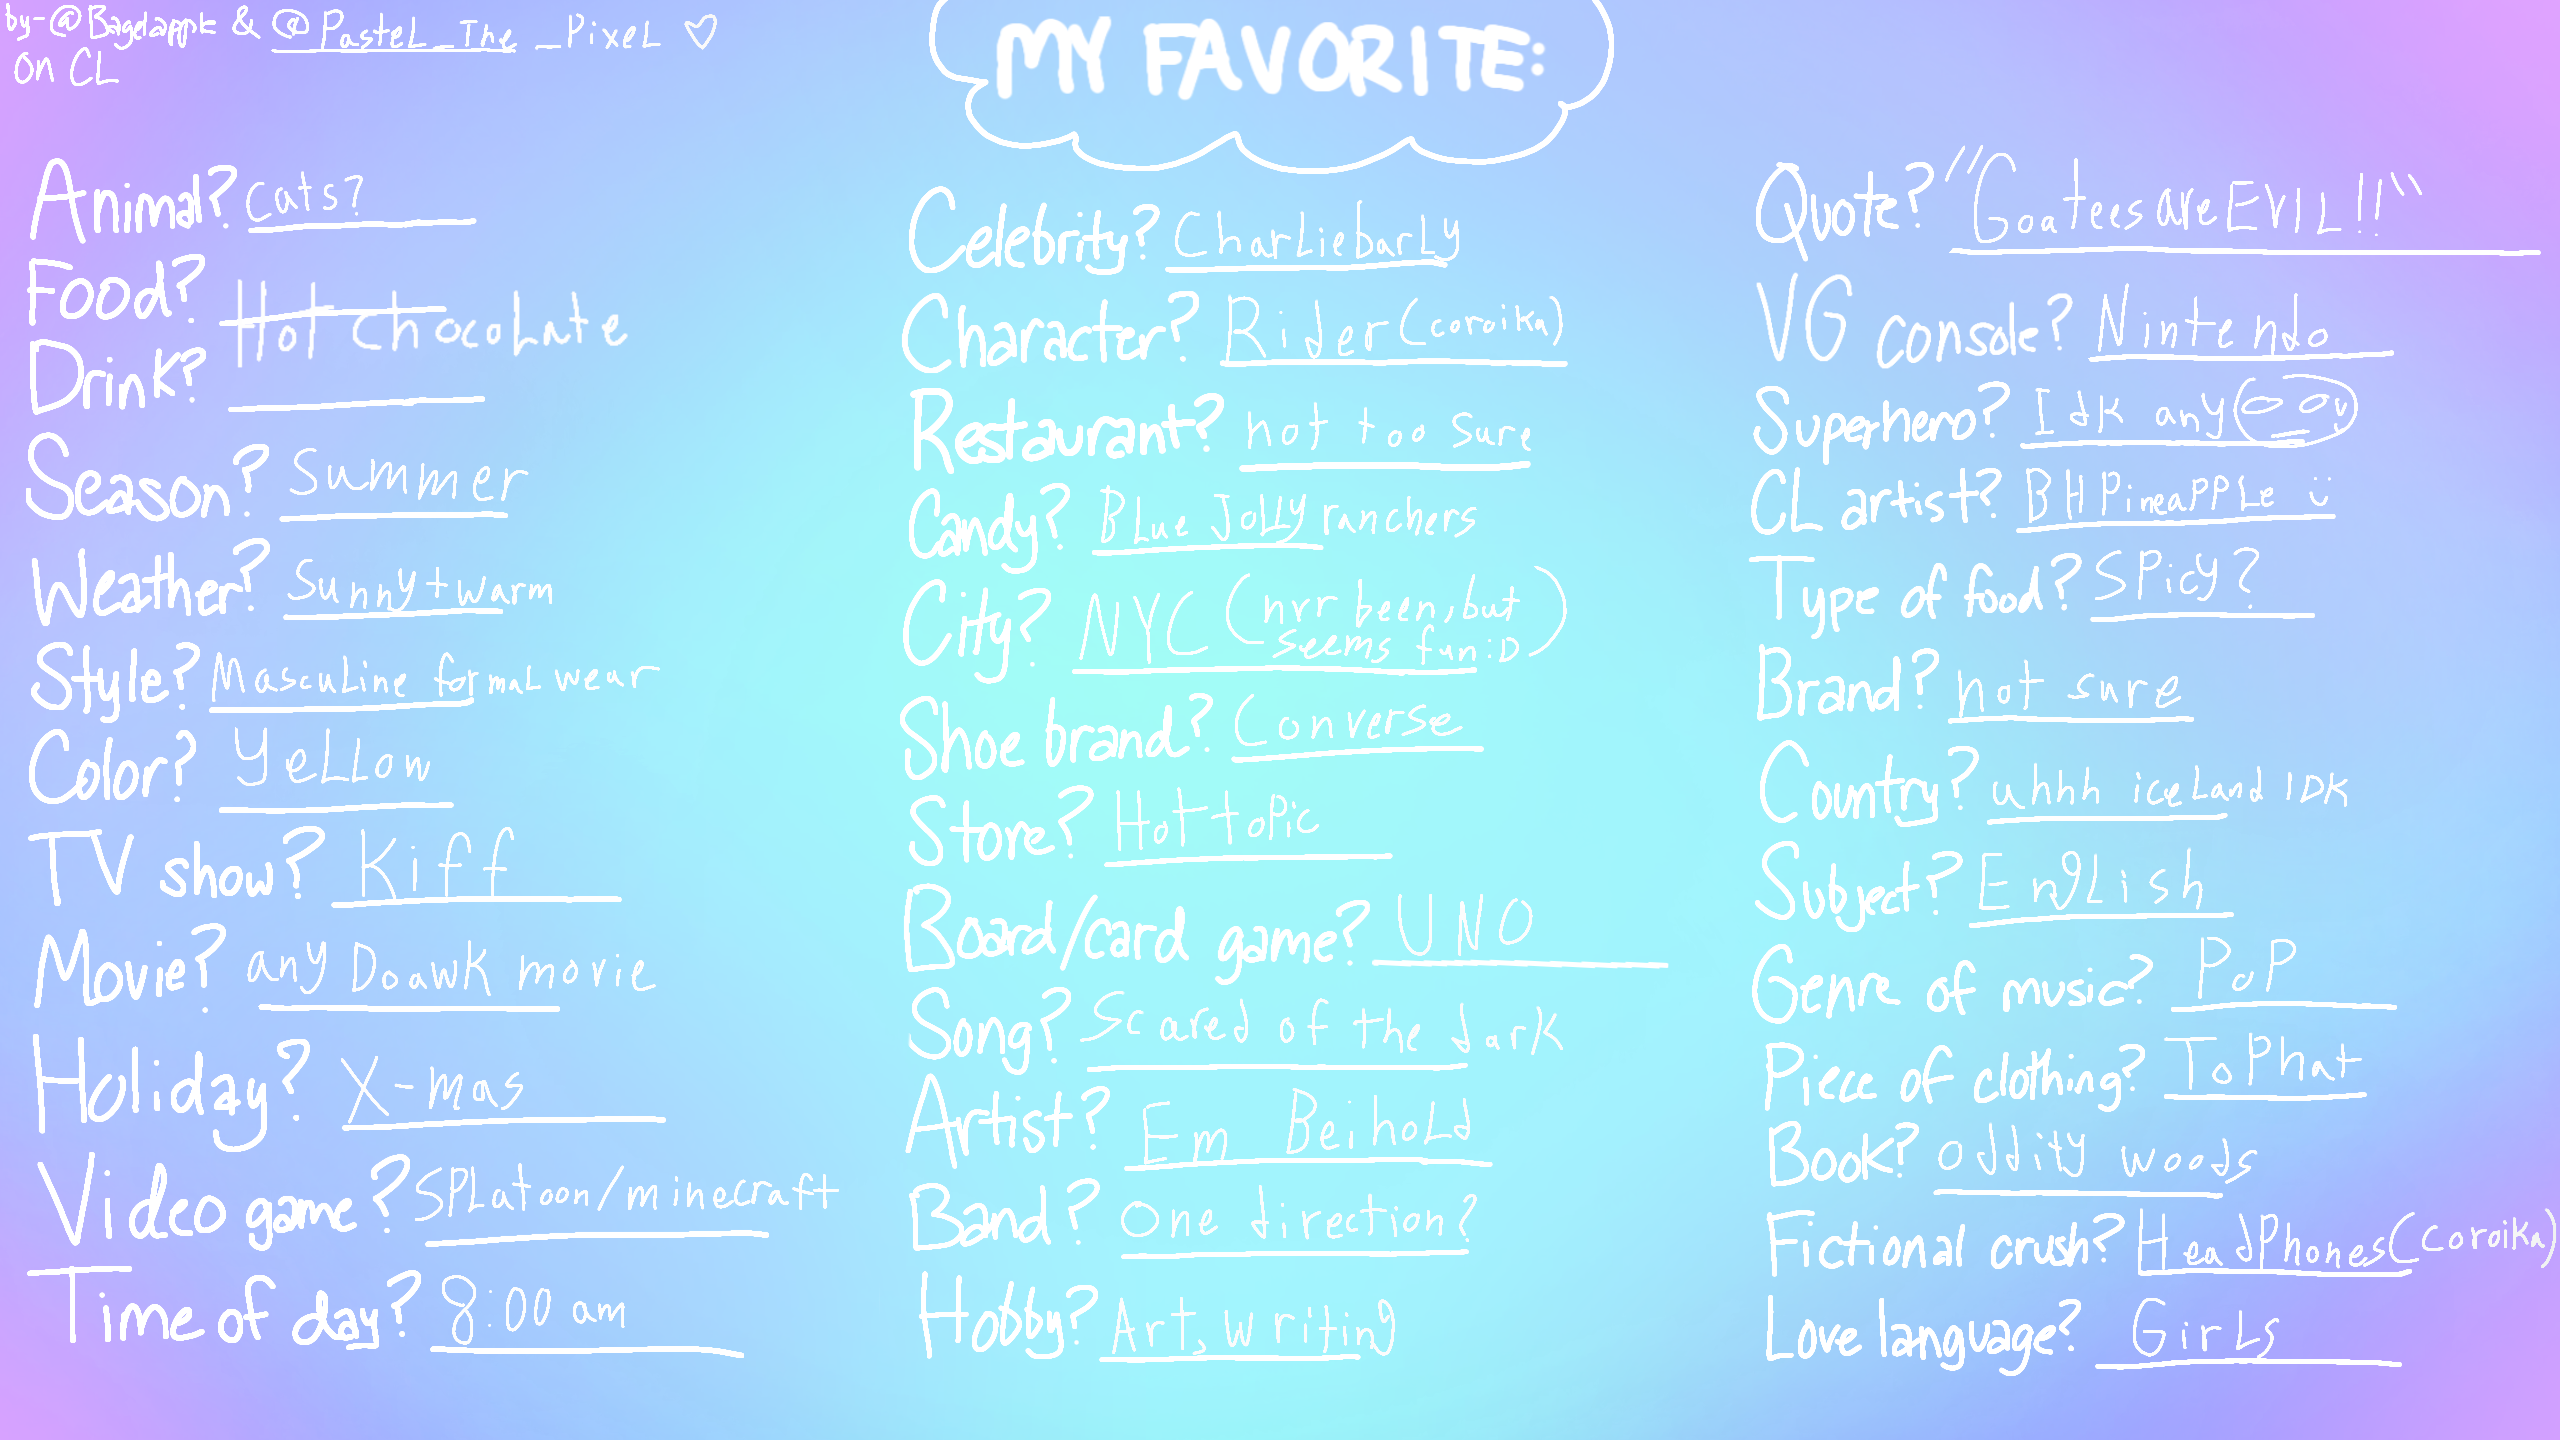 by-@Bagelappk & @Pastel_The_Pixel ♡
on CL
MY FAVORITE:
Animal? Cats?
Food?
Hot chocolate
Drink?
Season? Summer
Weather? Sunny+warm
Style? Masculine formal wear
Color? Yellow
TV show? Kiff
Movie? any Doawk movie
Holiday? X-mas
Video game? Splatoon/minecraft
Time of day? 8:00 am
Celebrity? Charliebarly
Character? Rider (coroika)
Restaurant? not too sure
Candy? Blue Jolly ranchers
City? NYC (nvr been, but
seems fun :D)
Shoe brand? Converse
Store? Hot topic
Board/card game? UNO
Song? Scared of the dark
Artist? Em Beihold
Band? One direction?
Hobby? Art, writing
Quote? "Goatees are EVIL!!"
VG console? Nintendo
Superhero? Idk any
CL artist? BHPineapple ü
Type of food? Spicy?
Brand? not sure
Country? uhhh iceland IDK
Subject? English
Genre of music? Pop
Piece of clothing? Tophat
Book? oddity woods
Fictional crush? Headphones (coroika)
Love language? Girls